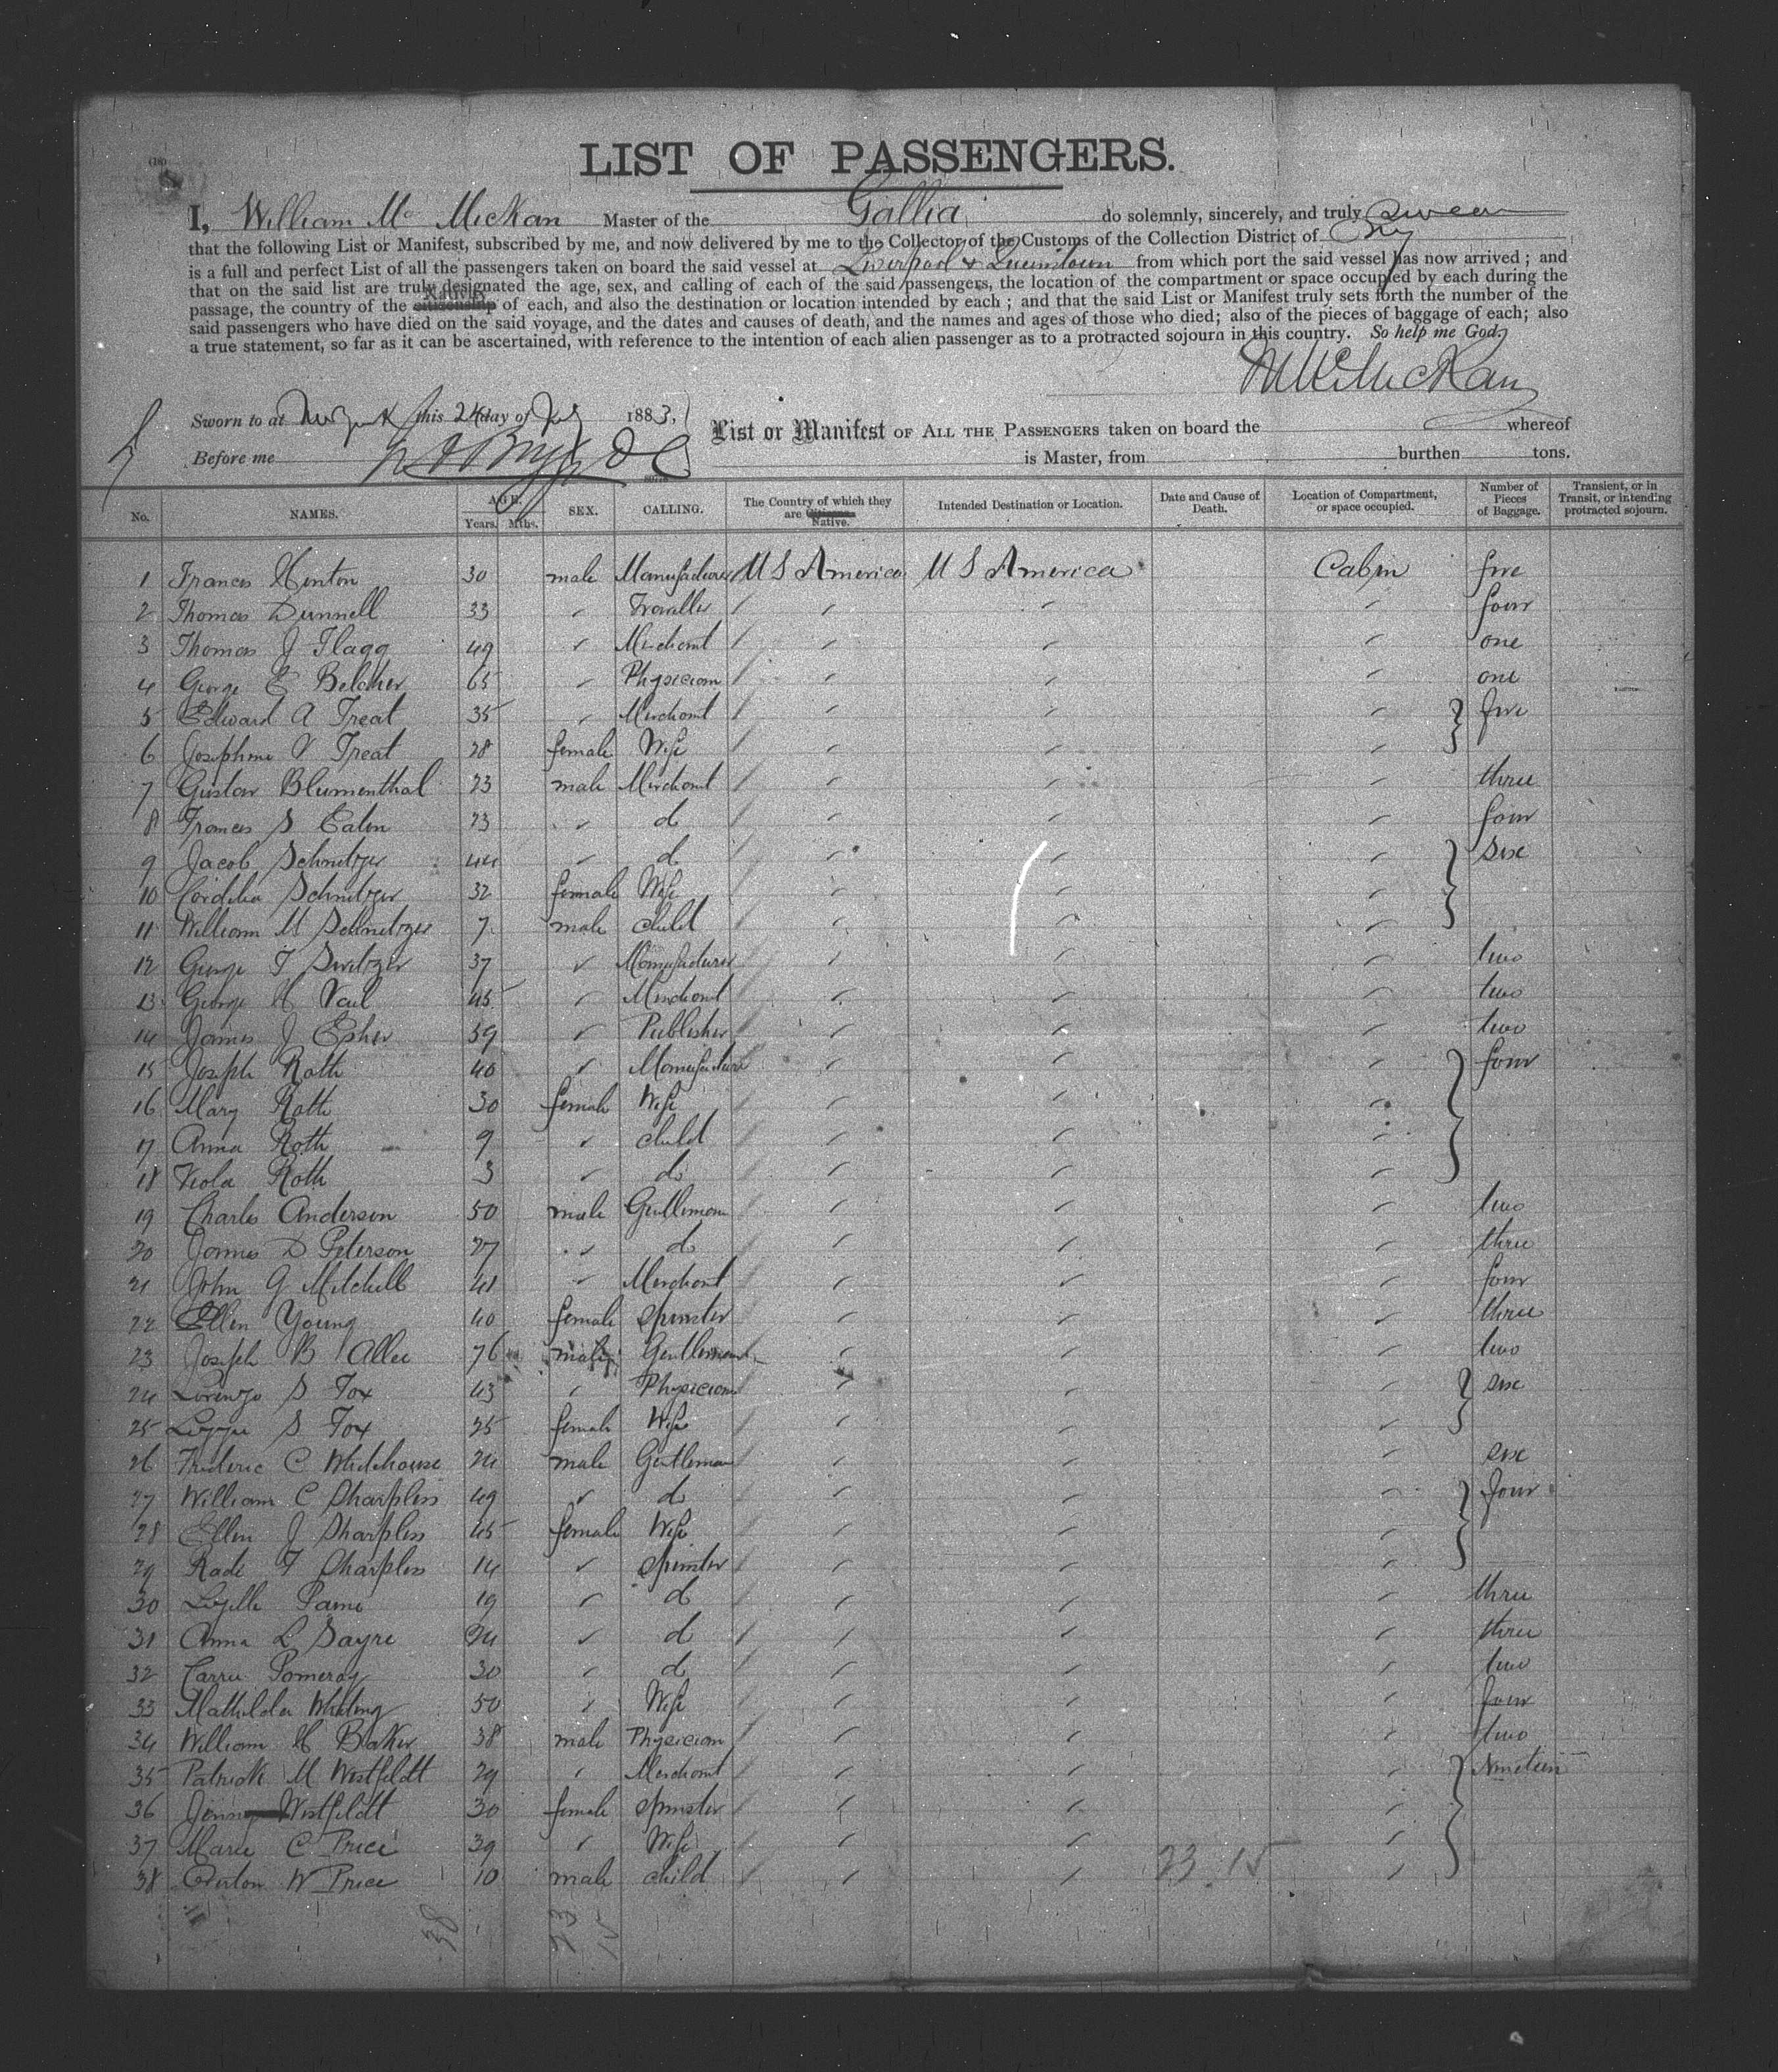 LIST OF PASSENGERS.
I, William Mc Mickan Master of the Gallia do solemnly, sincerely, and truly swear
that the following List or Manifest, subscribed by me, and now delivered by me to the Collector of the Customs of the Collection District of NY
is a full and perfect List of all the passengers taken on board the said vessel at Liverpool & Queenstown from which port the said vessel has now arrived; and
that on the said list are truly designated the age, sex, and calling of each of the said passengers, the location of the compartment or space occupied by each during the
passage, the country of the citizenship Nativity of each, and also the destination or location intended by each; and that the said List or Manifest truly sets forth the number of the
said passengers who have died on the said voyage, and the dates and causes of death, and the names and ages of those who died; also of the pieces of baggage of each; also
a true statement, so far as it can be ascertained, with reference to the intention of each alien passenger as to a protracted sojourn in this country. So help me God.
McMickan
Sworn to at this 24 day of July 1883,
Before me
List or Manifest OF ALL THE PASSENGERS taken on board the whereof
is Master, from burthen tons.
No. NAMES. AGE. Years. Mths. SEX. CALLING. The Country of which they are Citizens Native. Intended Destination or Location. Date and Cause of Death. Location of Compartment, or space occupied. Number of Pieces of Baggage. Transient, or in Transit, or intending protracted sojourn.
1 Francis Hinton 30 male Manufacturer U S America U S America Cabin five
2 Thomas Dunnell 33 " Traveller " " " four
3 Thomas J Flagg 49 " Merchant " " " one
4 George E Belcher 65 " Physician " " " one
5 Edward A Treat 35 " Merchant " " " five
6 Josephine V Treat 28 female Wife " " "
7 Gustav Blumenthal 23 male Merchant " " " three
8 Frances S 23 " do " " " four
9 Jacob Schnitzer 44 " do " " " six
10 Cordelia Schnitzer 32 female Wife " " "
11 William M Schnitzer 7 male child " " "
12 George T Switzer 37 " Manufacturer " " " two
13 George H Vail 45 " Merchant " " " two
14 James J Esher 59 " Publisher " " " two
15 Joseph Roth 40 " Manufacturer " " " four
16 Mary Roth 30 female Wife " " "
17 Anna Roth 9 " child " " "
18 Viola Roth 3 " do " " "
19 Charles Anderson 50 male Gentleman " " " two
20 James D Peterson 27 " do " " " three
21 John G Mitchell 41 " Merchant " " " four
22 Ellen Young 40 female Spinster " " " three
23 Joseph B Allee 76 male Gentleman " " " two
24 Lorenzo S Fox 43 " Physician " " " six
25 Lizzie S Fox 25 female Wife " " "
26 Frederic C Whitehouse 24 male Gentleman " " " six
27 William C Sharpless 49 " do " " " four
28 Ellen J Sharpless 45 female Wife " " "
29 T Sharpless 14 " Spinster " " "
30 19 " do " " " three
31 Anna L Sayre 24 " do " " " three
32 Carrie Pomeroy 30 " do " " " two
33 Mathilda Whiting 50 " Wife " " " four
34 William H Baker 38 male Physician " " " two
35 Patrick M Westfeldt 29 " Merchant " " " Nineteen
36 Jenny Westfeldt 30 female Spinster " " "
37 Marie C Price 39 " Wife " " "
38 Overton W Price 10 male child " " "
23 15
38
23
15